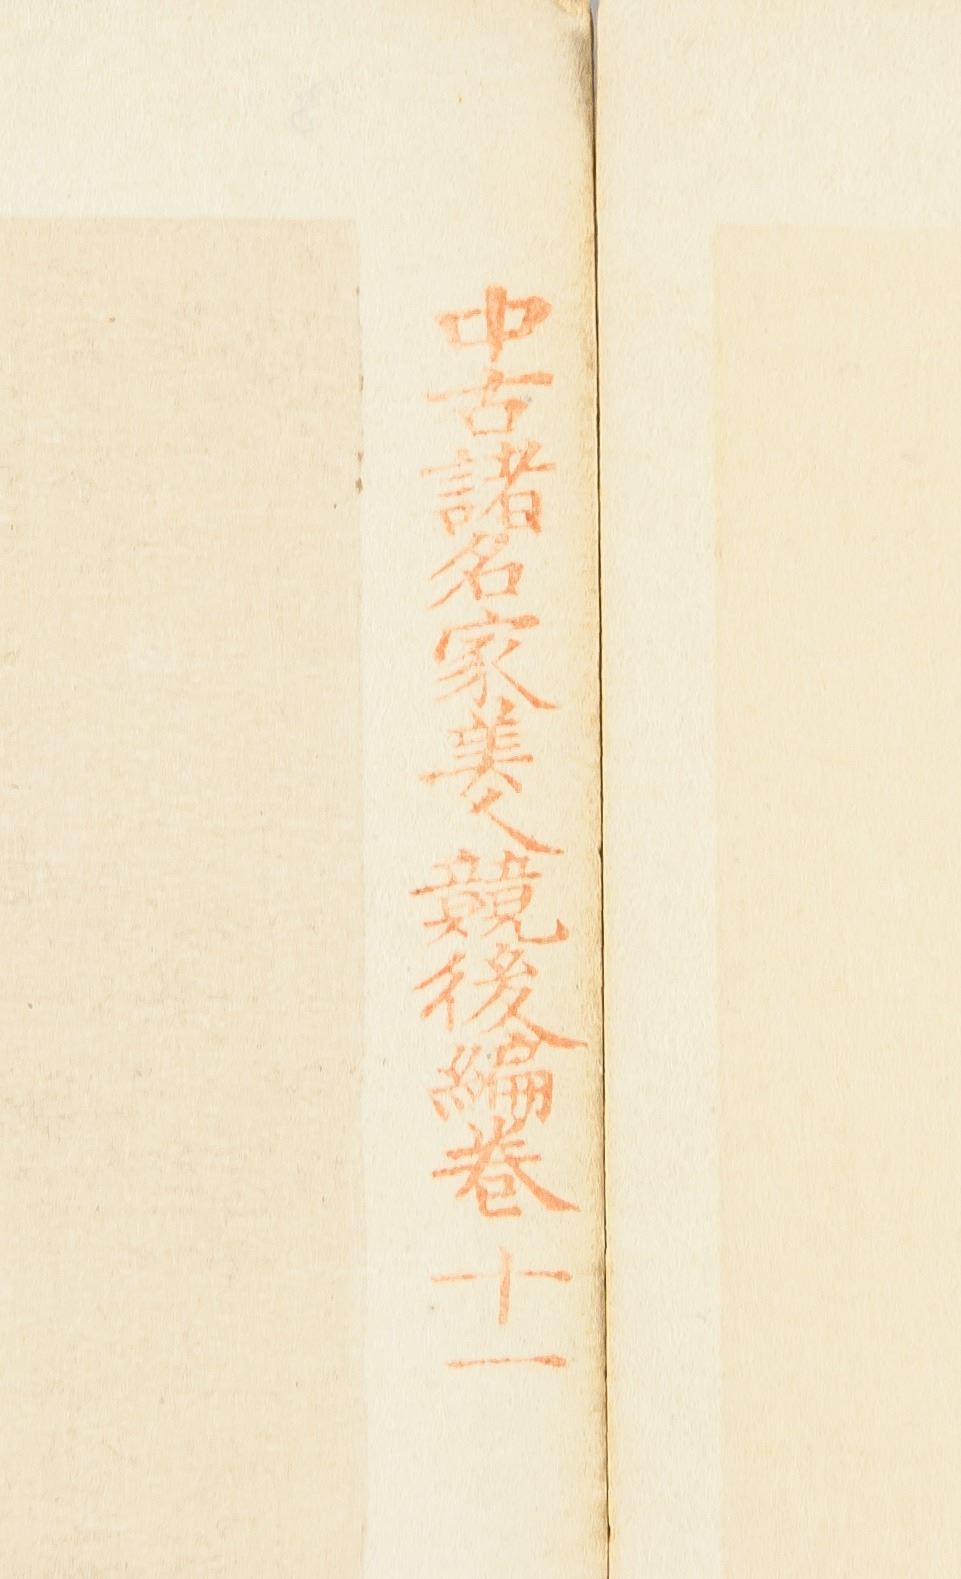 中古諸名家美人競後編巻十一